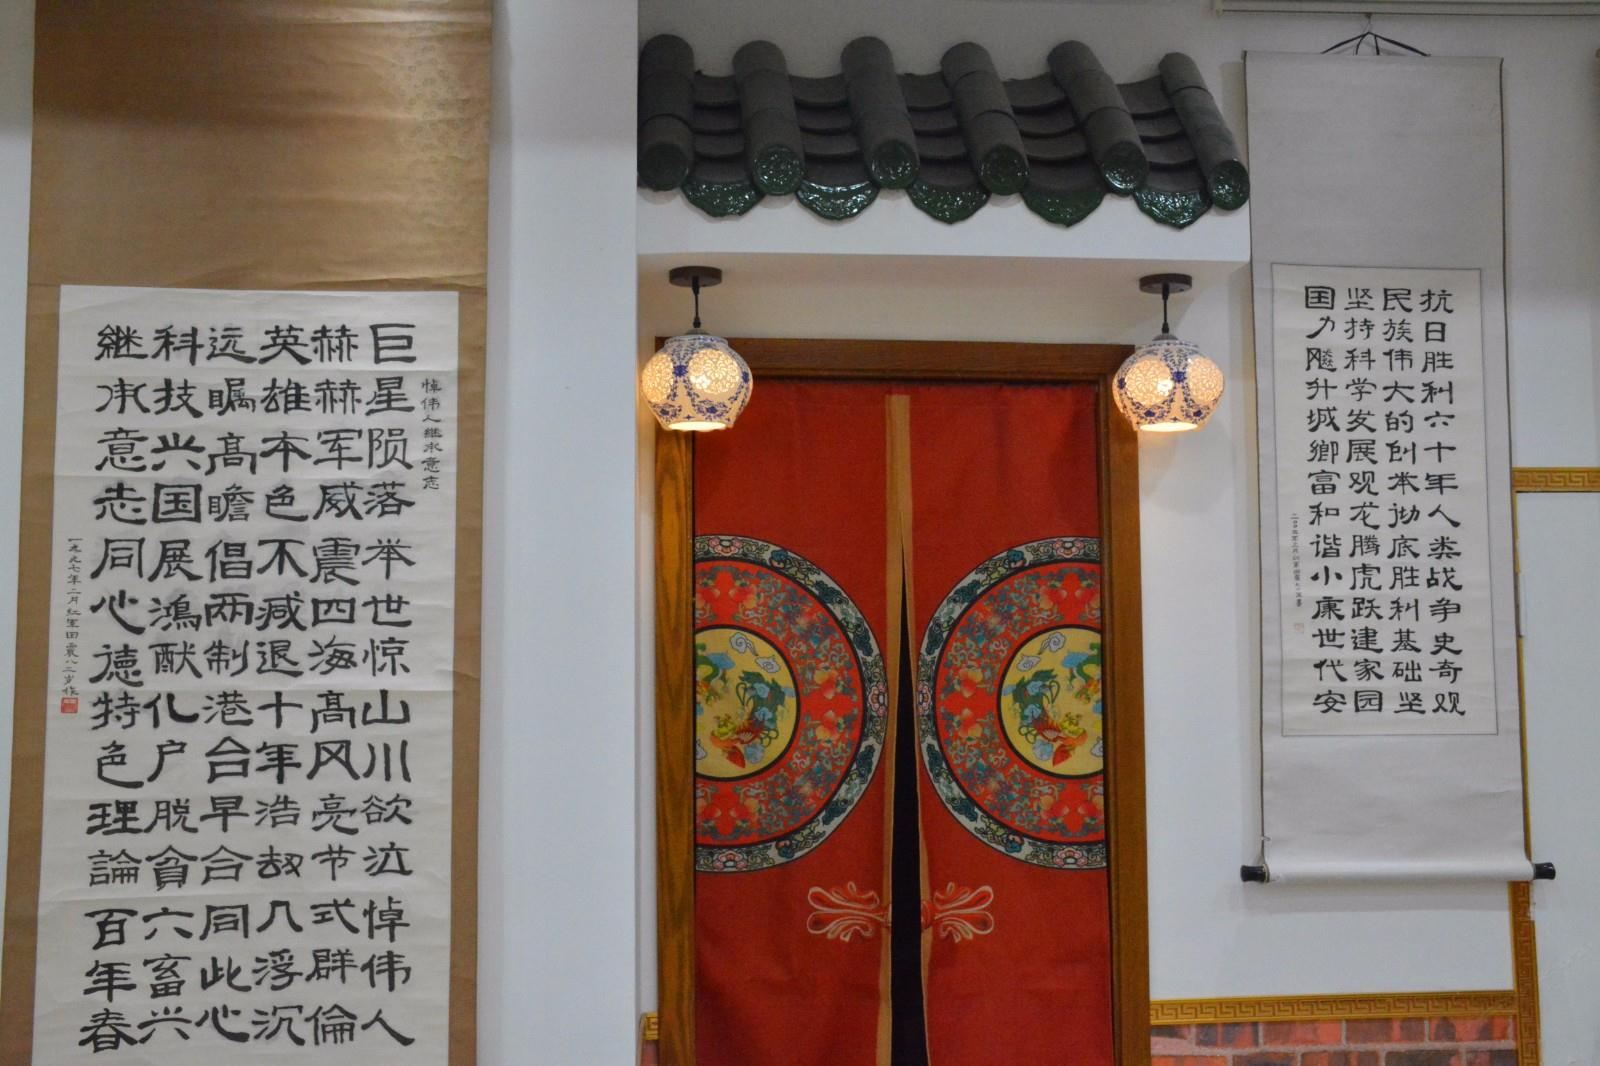 悼伟人継承意志
巨星陨落举世惊山川欲泣悼伟人
赫赫军威震四海髙风亮节式群倫
英雄本色不减退十年浩劫几浮沉
远瞩髙瞻倡两制港台早合同此心
科技兴国展鴻猷化户脱貧六畜兴
継承意志同心德特色理論百年春
一九九七年二月红军田震八二岁作
抗日胜利六十年人类战争史奇观
民族伟大的创举彻底胜利基础坚
坚持科学发展观龙腾虎跃建家园
国力飚升城鄉富和谐小康世代安